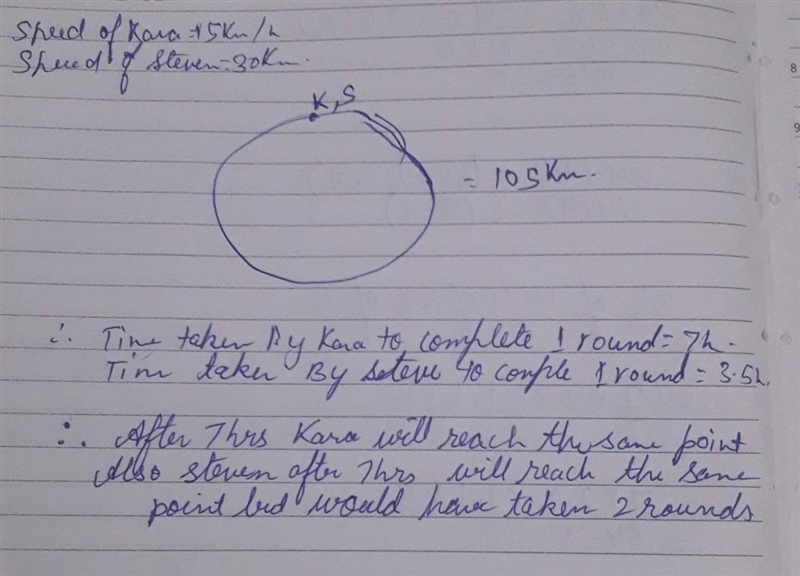 Speed of Kara = 15Km/h
Speed of Steven = 30Km.
K, S
= 105Km.
∴ Time taken By Kara to complete 1 round = 7h.
Time taken By steve to comple 1 round = 3.5h.
∴ After 7hrs Kara will reach the same point
Also steven after 7hrs will reach the same
point but would have taken 2 rounds
8
9